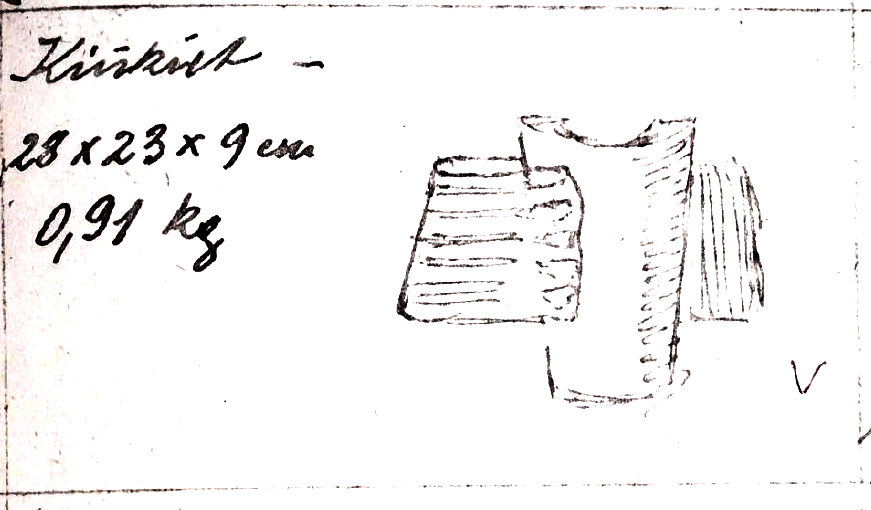 Kinkiet –
28 x 23 x 9 cm
0,91 kg
V